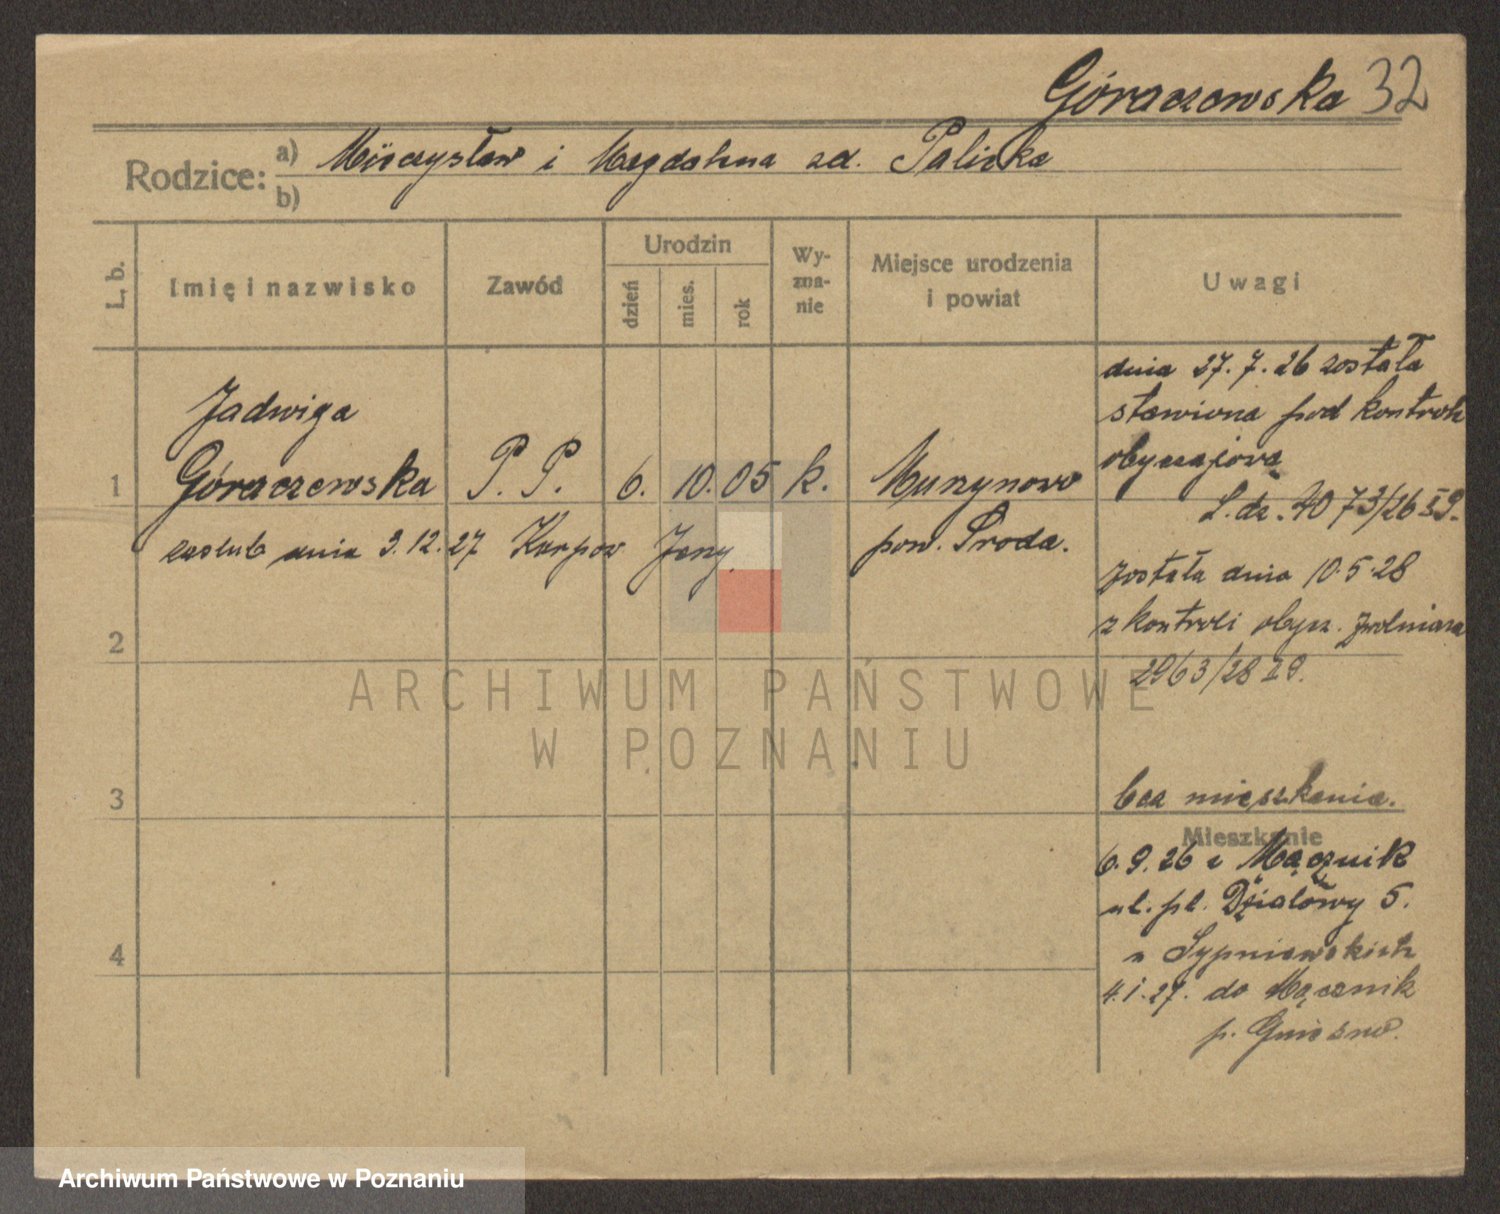 Góraczewska 32
Rodzice: a) Mieczysław i Magdalena zd. Palicka
b)
L. b.
Imię i nazwisko
Zawód
Urodzin
dzień
mies.
rok
Wy-
zna-
nie
Miejsce urodzenia
i powiat
Uwagi
1
Jadwiga
Góraczewska P. P. 6. 10. 05 k. Murzynowo
zaślub dnia 3.12.27 Karpow Jerzy pow. Środa.
dnia 27.7.26 została
stawiona pod kontrolę
obyczajową
L.dz. 4073/26
została dnia 10.5.28
z kontroli obycz. zwolniona
2963/28
2
3
4
bez mieszkania.
Mieszkanie
6.9.26 z Mącznik
ul. pl. Działowy 5.
u Sypniewskich
4.1.27. do Mącznik
p. Gniezno.
ARCHIWUM PAŃSTWOWE
W POZNANIU
Archiwum Państwowe w Poznaniu